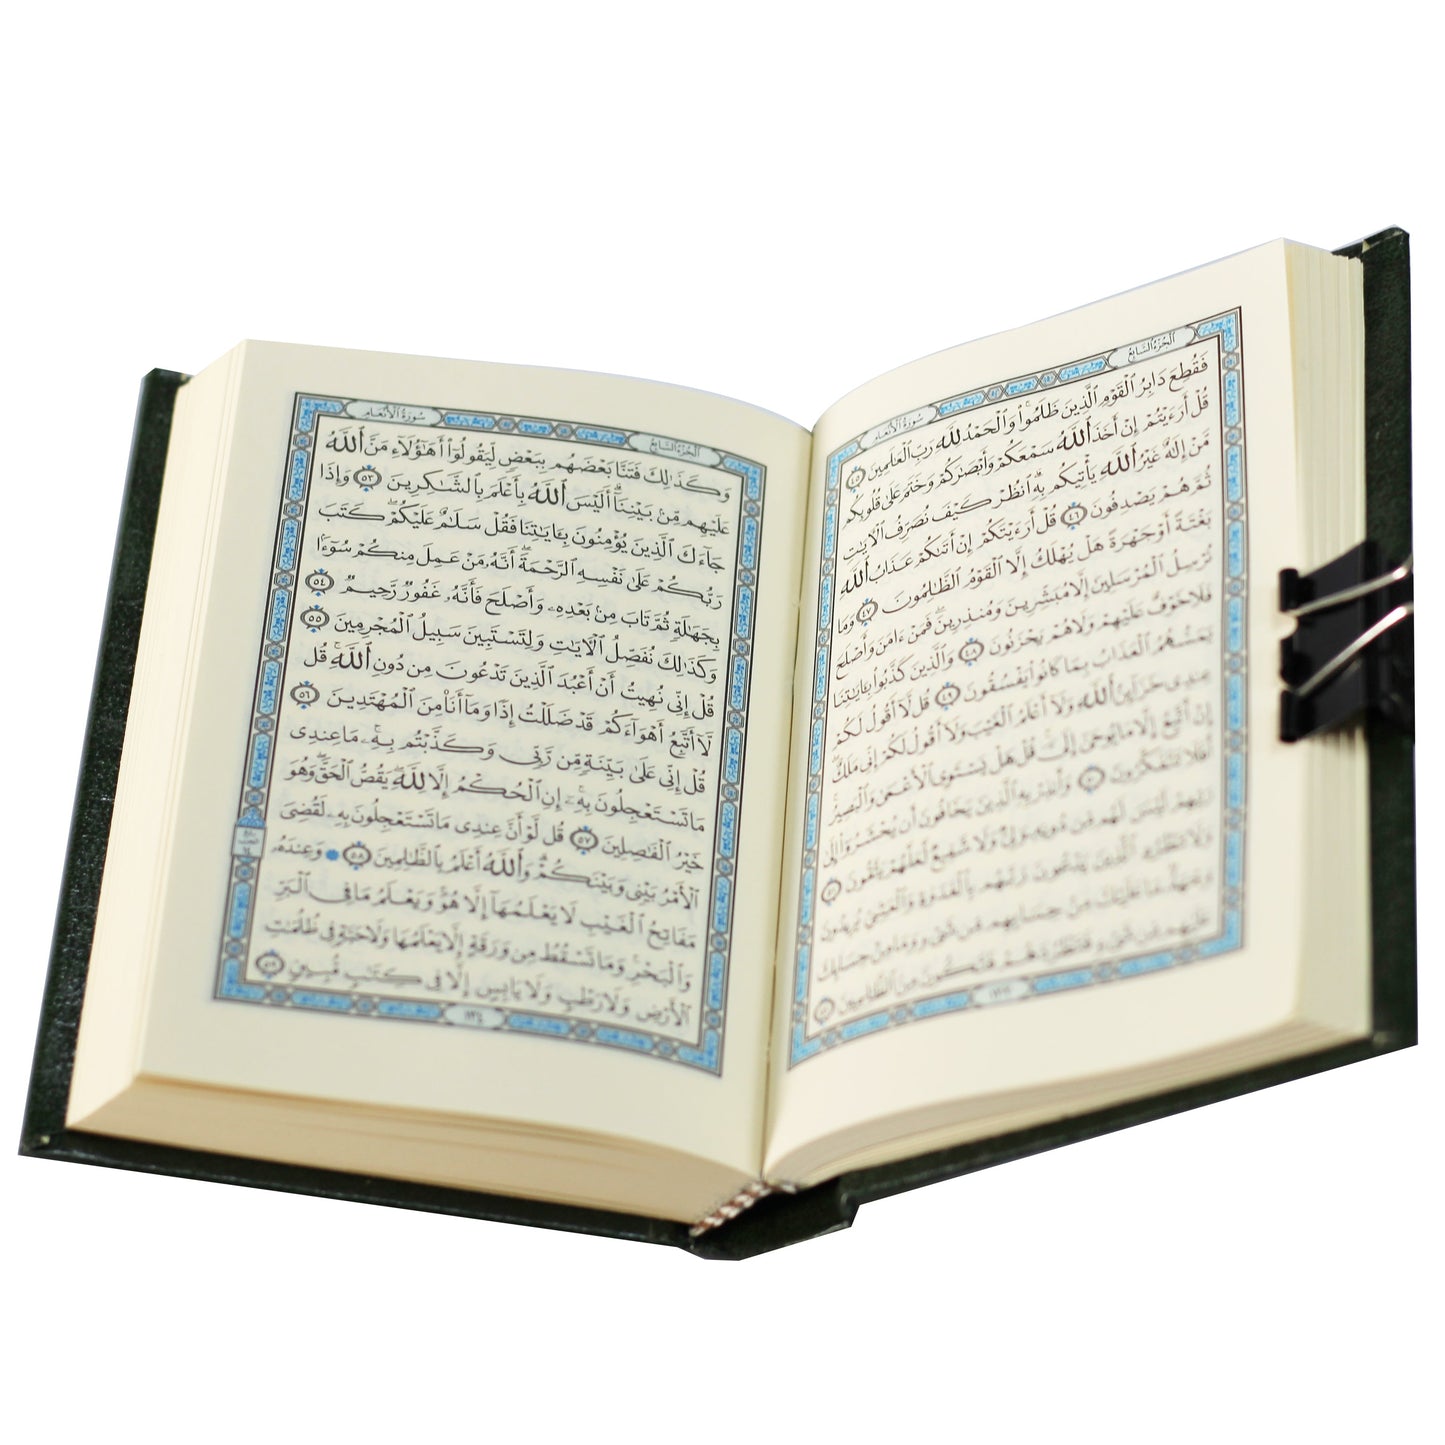 سورة الأنعام
الجزء السابع
فَقُطِعَ دَابِرُ ٱلْقَوْمِ ٱلَّذِينَ ظَلَمُوا۟ وَٱلْحَمْدُ لِلَّهِ رَبِّ ٱلْعَٰلَمِينَ ٤٥
قُلْ أَرَءَيْتُمْ إِنْ أَخَذَ ٱللَّهُ سَمْعَكُمْ وَأَبْصَٰرَكُمْ وَخَتَمَ عَلَىٰ قُلُوبِكُم
مَّنْ إِلَٰهٌ غَيْرُ ٱللَّهِ يَأْتِيكُم بِهِ ٱنظُرْ كَيْفَ نُصَرِّفُ ٱلْءَايَٰتِ
ثُمَّ هُمْ يَصْدِفُونَ ٤٦ قُلْ أَرَءَيْتَكُمْ إِنْ أَتَىٰكُمْ عَذَابُ ٱللَّهِ
بَغْتَةً أَوْ جَهْرَةً هَلْ يُهْلَكُ إِلَّا ٱلْقَوْمُ ٱلظَّٰلِمُونَ ٤٧ وَمَا
نُرْسِلُ ٱلْمُرْسَلِينَ إِلَّا مُبَشِّرِينَ وَمُنذِرِينَ فَمَنْ ءَامَنَ وَأَصْلَحَ
فَلَا خَوْفٌ عَلَيْهِمْ وَلَا هُمْ يَحْزَنُونَ ٤٨ وَٱلَّذِينَ كَذَّبُوا۟ بِـَٔايَٰتِنَا
يَمَسُّهُمُ ٱلْعَذَابُ بِمَا كَانُوا۟ يَفْسُقُونَ ٤٩ قُل لَّآ أَقُولُ لَكُمْ
عِندِى خَزَآئِنُ ٱللَّهِ وَلَآ أَعْلَمُ ٱلْغَيْبَ وَلَآ أَقُولُ لَكُمْ إِنِّى مَلَكٌ
إِنْ أَتَّبِعُ إِلَّا مَا يُوحَىٰٓ إِلَىَّ قُلْ هَلْ يَسْتَوِى ٱلْأَعْمَىٰ وَٱلْبَصِيرُ
أَفَلَا تَتَفَكَّرُونَ ٥٠ وَأَنذِرْ بِهِ ٱلَّذِينَ يَخَافُونَ أَن يُحْشَرُوٓا۟ إِلَىٰ
رَبِّهِمْ لَيْسَ لَهُم مِّن دُونِهِۦ وَلِىٌّ وَلَا شَفِيعٌ لَّعَلَّهُمْ يَتَّقُونَ ٥١
وَلَا تَطْرُدِ ٱلَّذِينَ يَدْعُونَ رَبَّهُم بِٱلْغَدَوٰةِ وَٱلْعَشِىِّ يُرِيدُونَ
وَجْهَهُۥ مَا عَلَيْكَ مِنْ حِسَابِهِم مِّن شَىْءٍ وَمَا مِنْ حِسَابِكَ
عَلَيْهِم مِّن شَىْءٍ فَتَطْرُدَهُمْ فَتَكُونَ مِنَ ٱلظَّٰلِمِينَ ٥٢
١٣٣
سورة الأنعام
الجزء السابع
وَكَذَٰلِكَ فَتَنَّا بَعْضَهُم بِبَعْضٍ لِّيَقُولُوٓا۟ أَهَٰٓؤُلَآءِ مَنَّ ٱللَّهُ
عَلَيْهِم مِّنۢ بَيْنِنَآ أَلَيْسَ ٱللَّهُ بِأَعْلَمَ بِٱلشَّٰكِرِينَ ٥٣ وَإِذَا
جَآءَكَ ٱلَّذِينَ يُؤْمِنُونَ بِـَٔايَٰتِنَا فَقُلْ سَلَٰمٌ عَلَيْكُمْ كَتَبَ
رَبُّكُمْ عَلَىٰ نَفْسِهِ ٱلرَّحْمَةَ أَنَّهُۥ مَنْ عَمِلَ مِنكُمْ سُوٓءًۢا
بِجَهَٰلَةٍ ثُمَّ تَابَ مِنۢ بَعْدِهِۦ وَأَصْلَحَ فَأَنَّهُۥ غَفُورٌ رَّحِيمٌ ٥٤
وَكَذَٰلِكَ نُفَصِّلُ ٱلْءَايَٰتِ وَلِتَسْتَبِينَ سَبِيلُ ٱلْمُجْرِمِينَ ٥٥
قُلْ إِنِّى نُهِيتُ أَنْ أَعْبُدَ ٱلَّذِينَ تَدْعُونَ مِن دُونِ ٱللَّهِ قُل
لَّآ أَتَّبِعُ أَهْوَآءَكُمْ قَدْ ضَلَلْتُ إِذًا وَمَآ أَنَا۠ مِنَ ٱلْمُهْتَدِينَ ٥٦
قُلْ إِنِّى عَلَىٰ بَيِّنَةٍ مِّن رَّبِّى وَكَذَّبْتُم بِهِۦ مَا عِندِى
مَا تَسْتَعْجِلُونَ بِهِۦٓ إِنِ ٱلْحُكْمُ إِلَّا لِلَّهِ يَقُصُّ ٱلْحَقَّ وَهُوَ
خَيْرُ ٱلْفَٰصِلِينَ ٥٧ قُل لَّوْ أَنَّ عِندِى مَا تَسْتَعْجِلُونَ بِهِۦ لَقُضِىَ
ٱلْأَمْرُ بَيْنِى وَبَيْنَكُمْ وَٱللَّهُ أَعْلَمُ بِٱلظَّٰلِمِينَ ٥٨ وَعِندَهُۥ
مَفَاتِحُ ٱلْغَيْبِ لَا يَعْلَمُهَآ إِلَّا هُوَ وَيَعْلَمُ مَا فِى ٱلْبَرِّ
وَٱلْبَحْرِ وَمَا تَسْقُطُ مِن وَرَقَةٍ إِلَّا يَعْلَمُهَا وَلَا حَبَّةٍ فِى ظُلُمَٰتِ
ٱلْأَرْضِ وَلَا رَطْبٍ وَلَا يَابِسٍ إِلَّا فِى كِتَٰبٍ مُّبِينٍ ٥٩
١٣٤